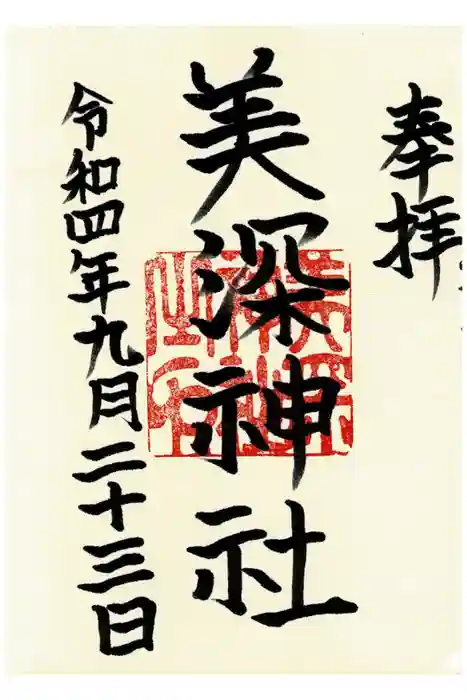 奉拝
美深神社
令和四年九月二十三日